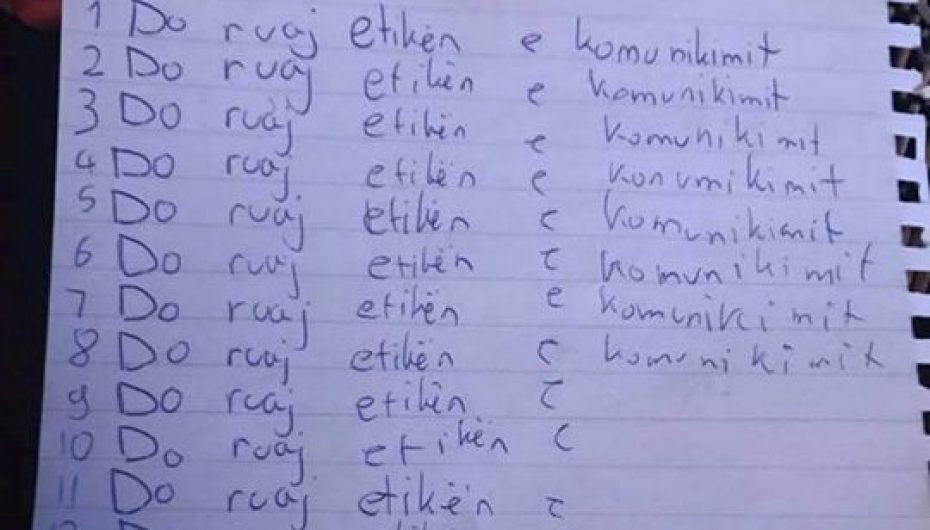 1 Do ruaj etikën e komunikimit
2 Do ruaj etikën e komunikimit
3 Do ruaj etikën e komunikimit
4 Do ruaj etikën e konumikimit
5 Do ruaj etikën e komunikimit
6 Do ruaj etikën e komunikimit
7 Do ruaj etikën e komunikimit
8 Do ruaj etikën e komunikimit
9 Do ruaj etikën e
10 Do ruaj etikën e
11 Do ruaj etikën e